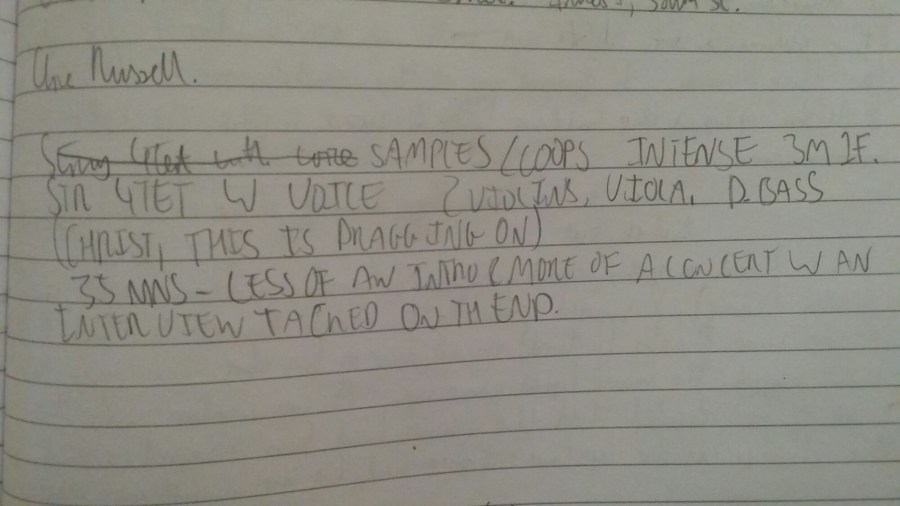 Russell.
String 4tet with voice SAMPLES/LOOPS INTENSE 3M IF.
STR 4TET W VOICE 2 VIOLINS, VIOLA, D.BASS
(CHRIST, THIS IS DRAGGING ON)
35 MNS - LESS OF AN INTRO & MORE OF A CONCERT W AN
INTERVIEW TACKED ON TH END.